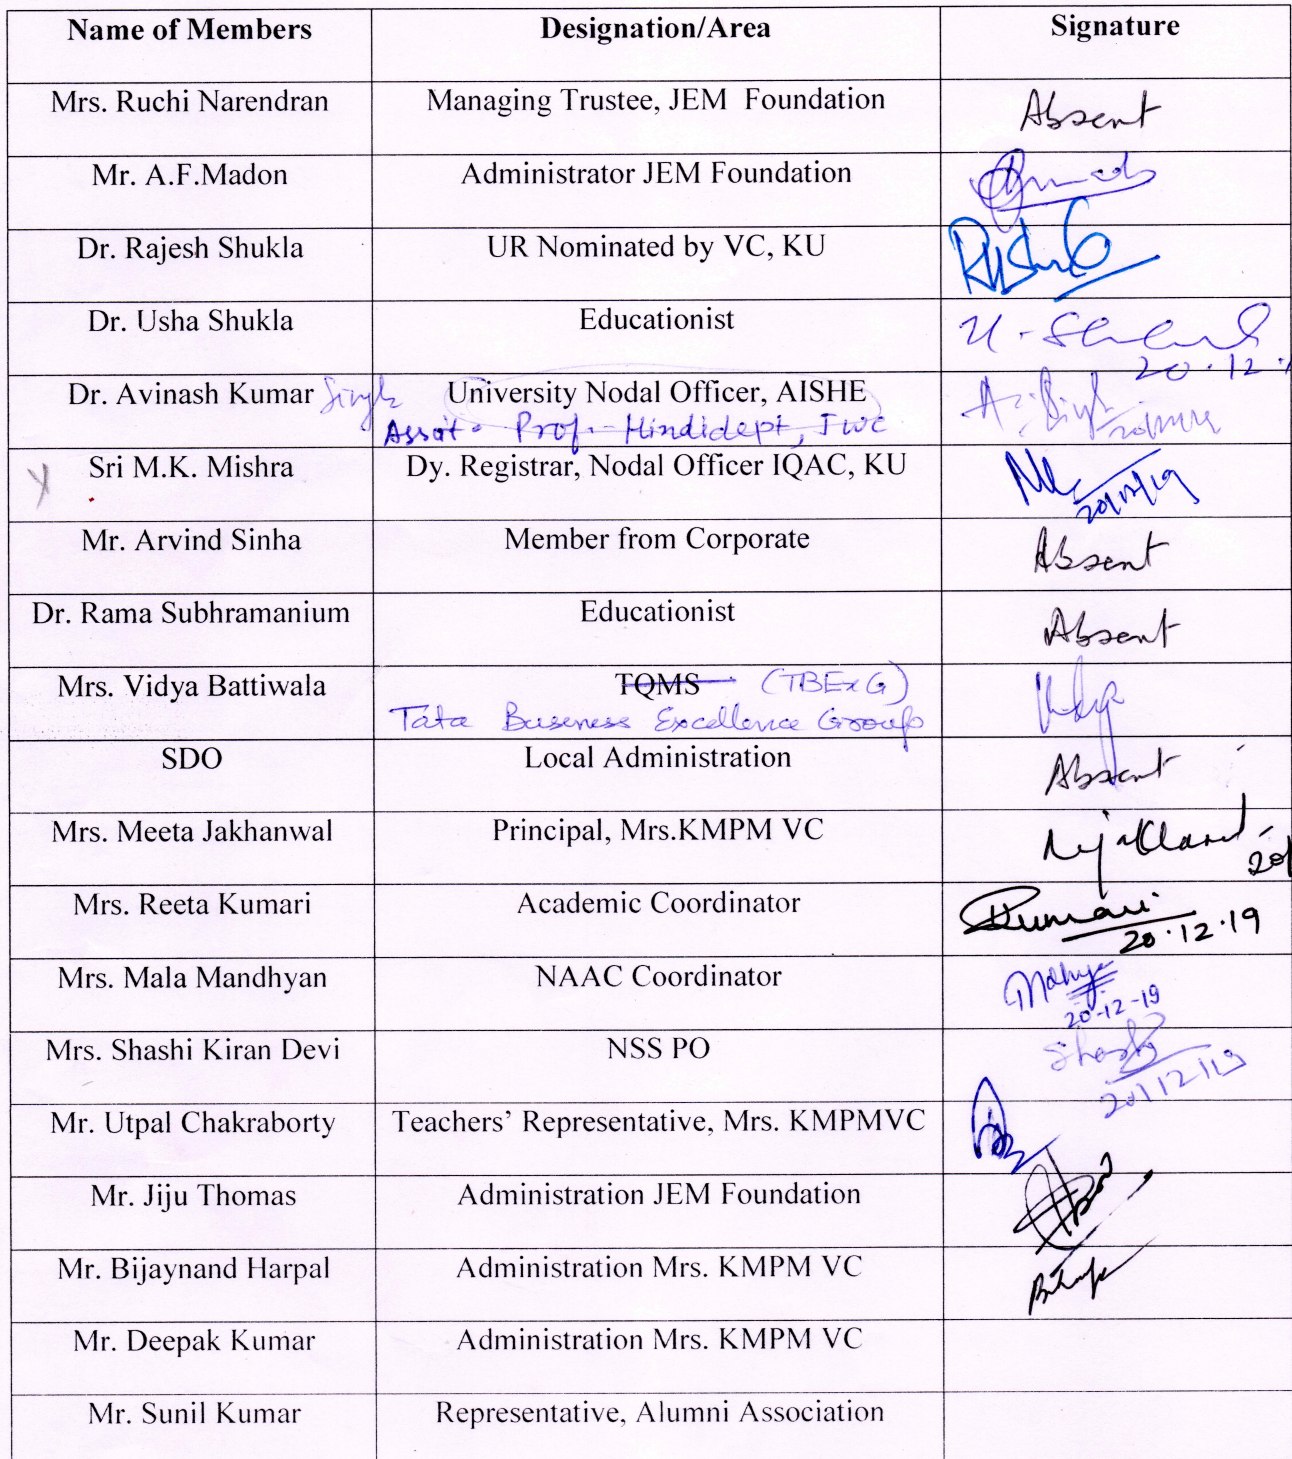 Name of Members Designation/Area Signature
Mrs. Ruchi Narendran Managing Trustee, JEM Foundation Absent
Mr. A.F.Madon Administrator JEM Foundation
Dr. Rajesh Shukla UR Nominated by VC, KU
Dr. Usha Shukla Educationist U. Shukla
20.12.
Dr. Avinash Kumar Singh University Nodal Officer, AISHE
Assit. Prof. Hindi dept, JWC
Sri M.K. Mishra Dy. Registrar, Nodal Officer IQAC, KU
20/12/19
Mr. Arvind Sinha Member from Corporate Absent
Dr. Rama Subhramanium Educationist Absent
Mrs. Vidya Battiwala TQMS (TBExG) Vidya
Tata Business Excellence Group
SDO Local Administration Absent
Mrs. Meeta Jakhanwal Principal, Mrs.KMPM VC
Mrs. Reeta Kumari Academic Coordinator RKumari
20.12.19
Mrs. Mala Mandhyan NAAC Coordinator
20-12-19
Mrs. Shashi Kiran Devi NSS PO Shashi
20/12/19
Mr. Utpal Chakraborty Teachers’ Representative, Mrs. KMPMVC
Mr. Jiju Thomas Administration JEM Foundation
Mr. Bijaynand Harpal Administration Mrs. KMPM VC
Mr. Deepak Kumar Administration Mrs. KMPM VC
Mr. Sunil Kumar Representative, Alumni Association